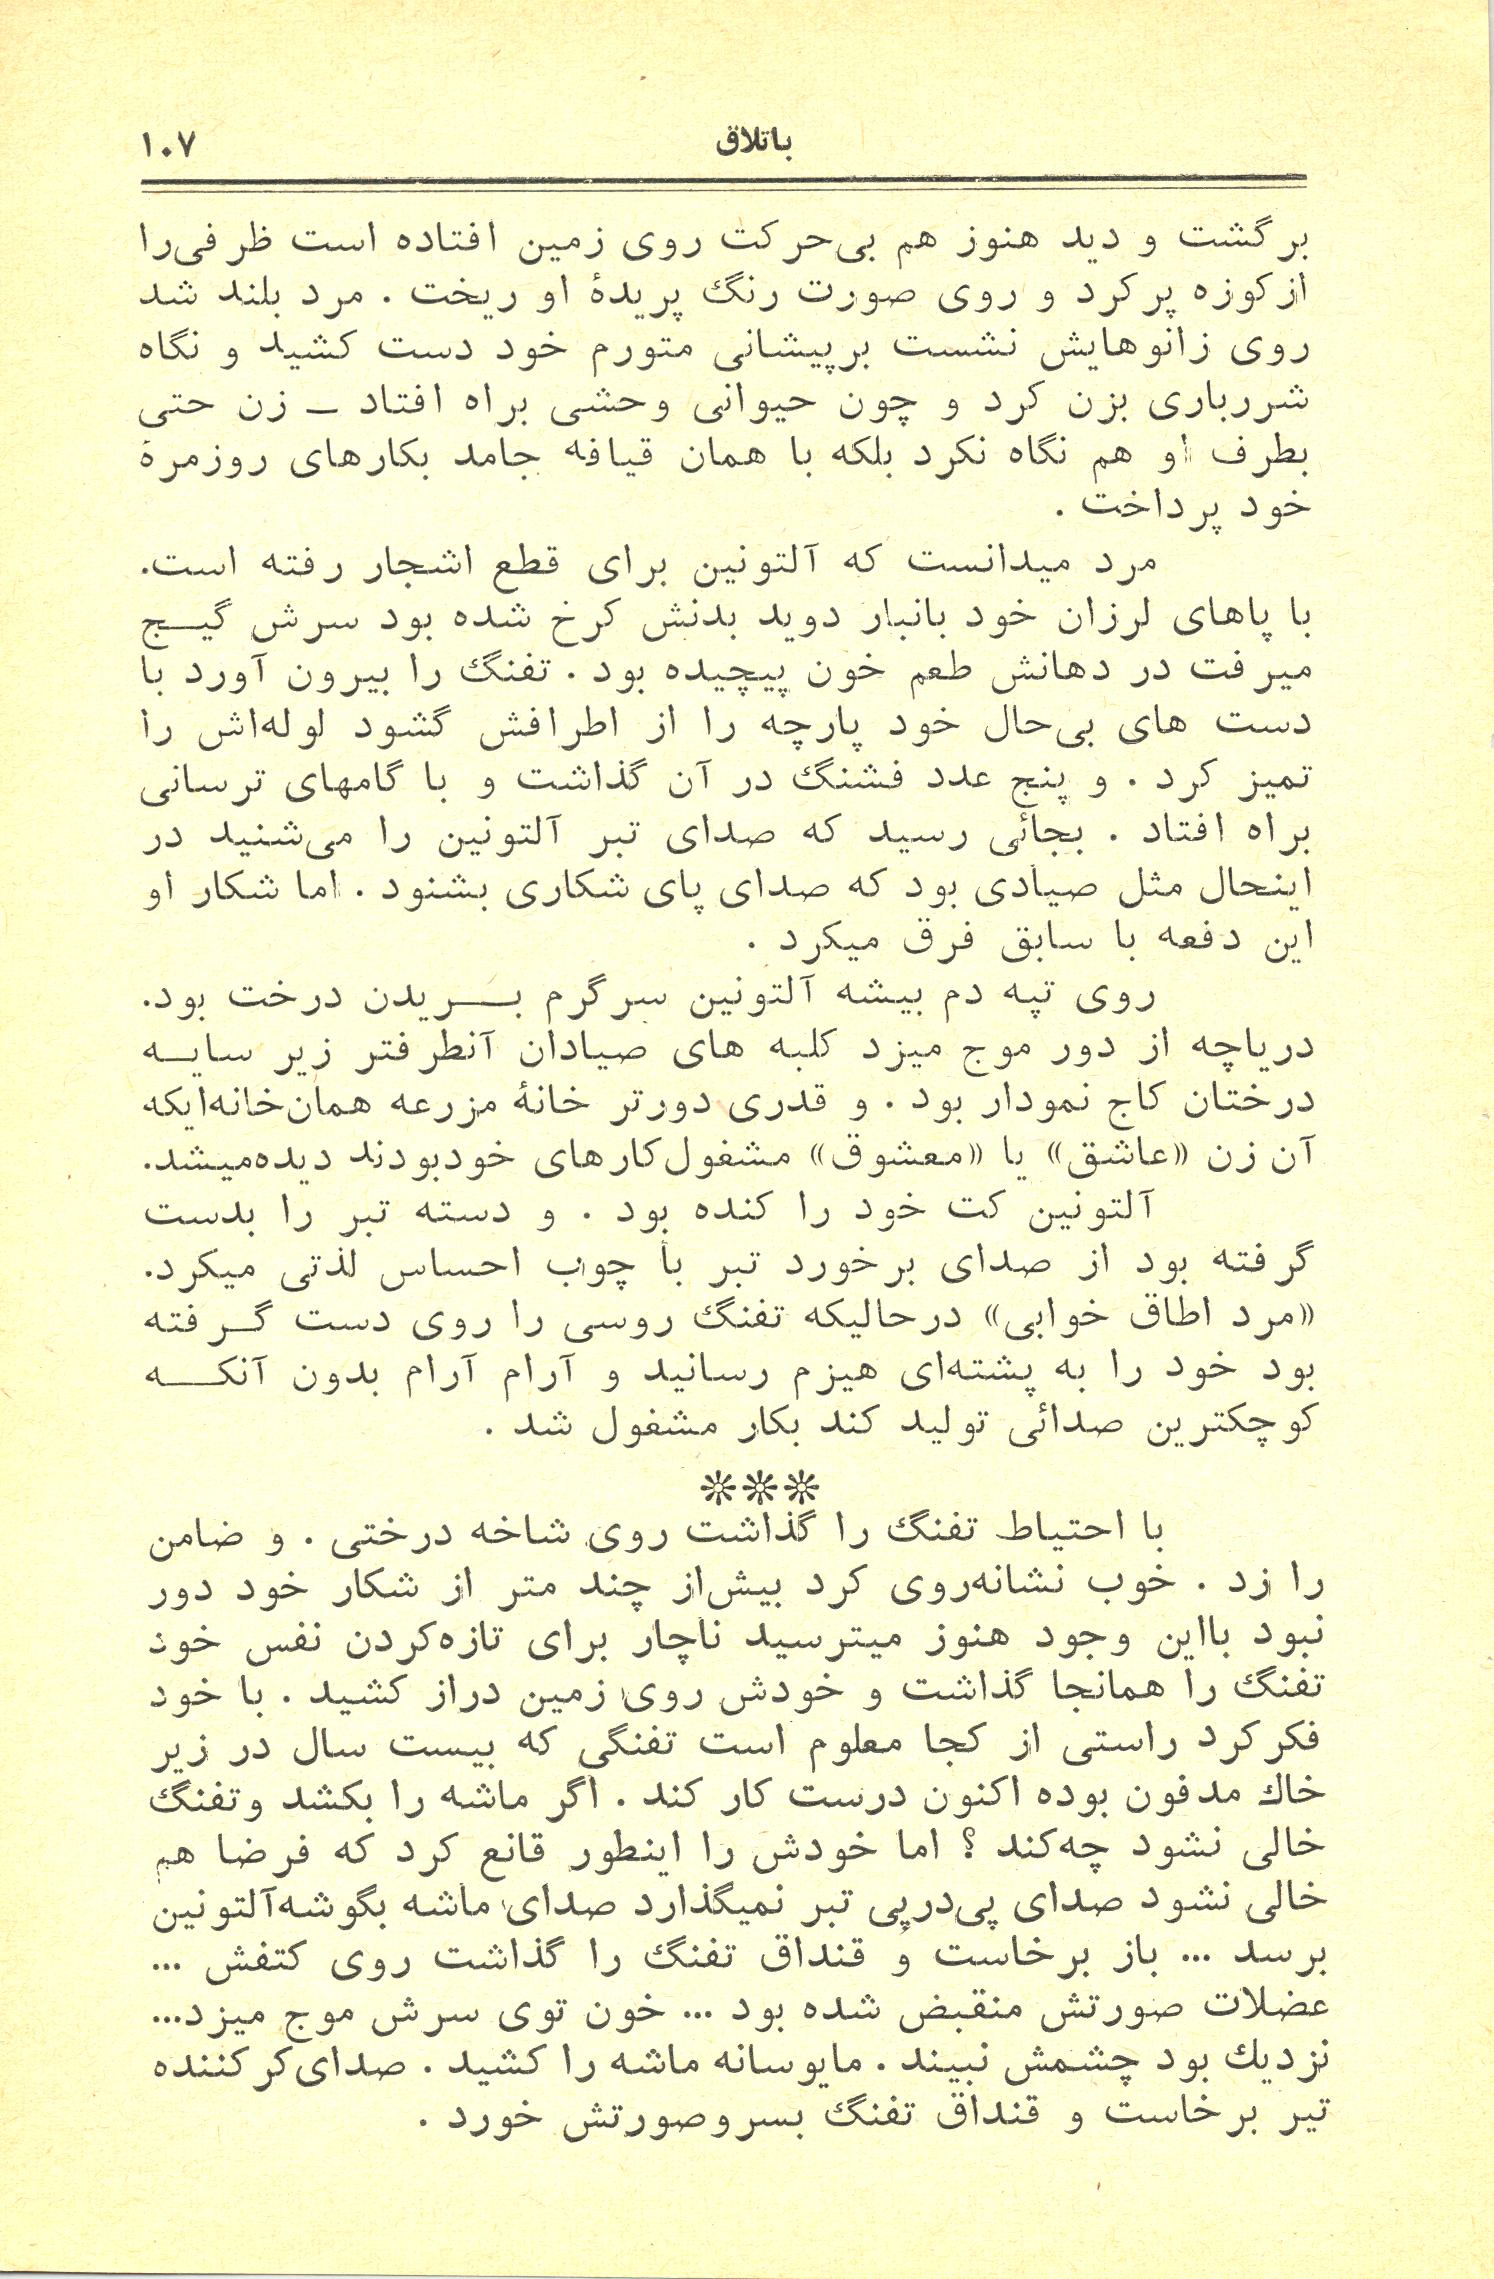 باتلاق
۱۰۷
برگشت و دید هنوز هم بی‌حرکت روی زمین افتاده است ظرفی‌را
ازکوزه پرکرد و روی صورت رنگ پریدهٔ او ریخت . مرد بلند شد
روی زانوهایش نشست برپیشانی متورم خود دست کشید و نگاه
شررباری بزن کرد و چون حیوانی وحشی براه افتاد ــ زن حتی
بطرف او هم نگاه نکرد بلکه با همان قیافه جامد بکارهای روزمرهٔ
خود پرداخت .
مرد میدانست که آلتونین برای قطع اشجار رفته است.
با پاهای لرزان خود بانبار دوید بدنش کرخ شده بود سرش گیــج
میرفت در دهانش طعم خون پیچیده بود . تفنگ را بیرون آورد با
دست های بی‌حال خود پارچه را از اطرافش گشود لوله‌اش را
تمیز کرد . و پنج عدد فشنگ در آن گذاشت و با گامهای ترسانی
براه افتاد . بجائی رسید که صدای تبر آلتونین را می‌شنید در
اینحال مثل صیادی بود که صدای پای شکاری بشنود . اما شکار او
این دفعه با سابق فرق میکرد .
روی تپه دم بیشه آلتونین سرگرم بــریدن درخت بود.
دریاچه از دور موج میزد کلبه های صیادان آنطرفتر زیر سایــه
درختان کاج نمودار بود . و قدری دورتر خانهٔ مزرعه همان‌خانه‌ایکه
آن زن «عاشق» یا «معشوق» مشغول‌کارهای خودبودند دیده‌میشد.
آلتونین کت خود را کنده بود . و دسته تبر را بدست
گرفته بود از صدای برخورد تبر با چوب احساس لذتی میکرد.
«مرد اطاق خوابی» درحالیکه تفنگ روسی را روی دست گــرفته
بود خود را به پشته‌ای هیزم رسانید و آرام آرام بدون آنکــه
کوچکترین صدائی تولید کند بکار مشغول شد .
***
با احتیاط تفنگ را گذاشت روی شاخه درختی . و ضامن
را زد . خوب نشانه‌روی کرد بیش‌از چند متر از شکار خود دور
نبود بااین وجود هنوز میترسید ناچار برای تازه‌کردن نفس خود
تفنگ را همانجا گذاشت و خودش روی زمین دراز کشید . با خود
فکرکرد راستی از کجا معلوم است تفنگی که بیست سال در زیر
خاك مدفون بوده اکنون درست کار کند . اگر ماشه را بکشد وتفنگ
خالی نشود چه‌کند ؟ اما خودش را اینطور قانع کرد که فرضا هم
خالی نشود صدای پی‌درپی تبر نمیگذارد صدای ماشه بگوشه‌آلتونین
برسد ... باز برخاست و قنداق تفنگ را گذاشت روی کتفش ...
عضلات صورتش منقبض شده بود ... خون توی سرش موج میزد...
نزدیك بود چشمش نبیند . مایوسانه ماشه را کشید . صدای‌کرکننده
تیر برخاست و قنداق تفنگ بسروصورتش خورد .